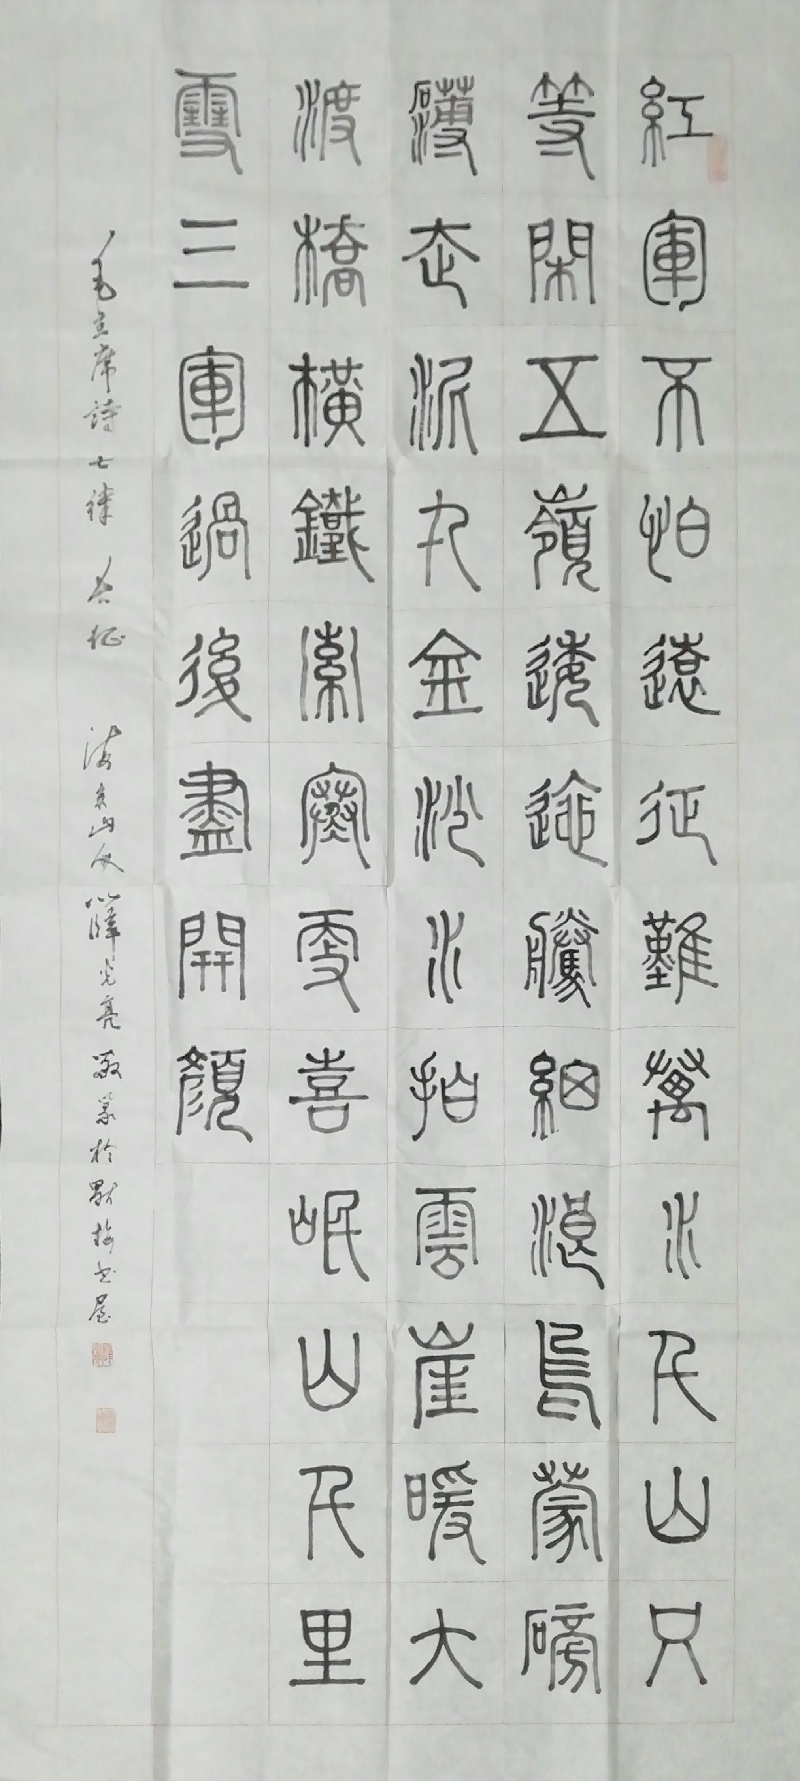 紅軍不怕遠征難萬水千山只
等閑五嶺逶迤騰細浪烏蒙磅
礴走泥丸金沙水拍雲崖暖大
渡橋橫鐵索寒更喜岷山千里
雪三軍過後盡開顏
毛主席詩七律 長征 山人 薛光亮 敬篆於默梅書屋